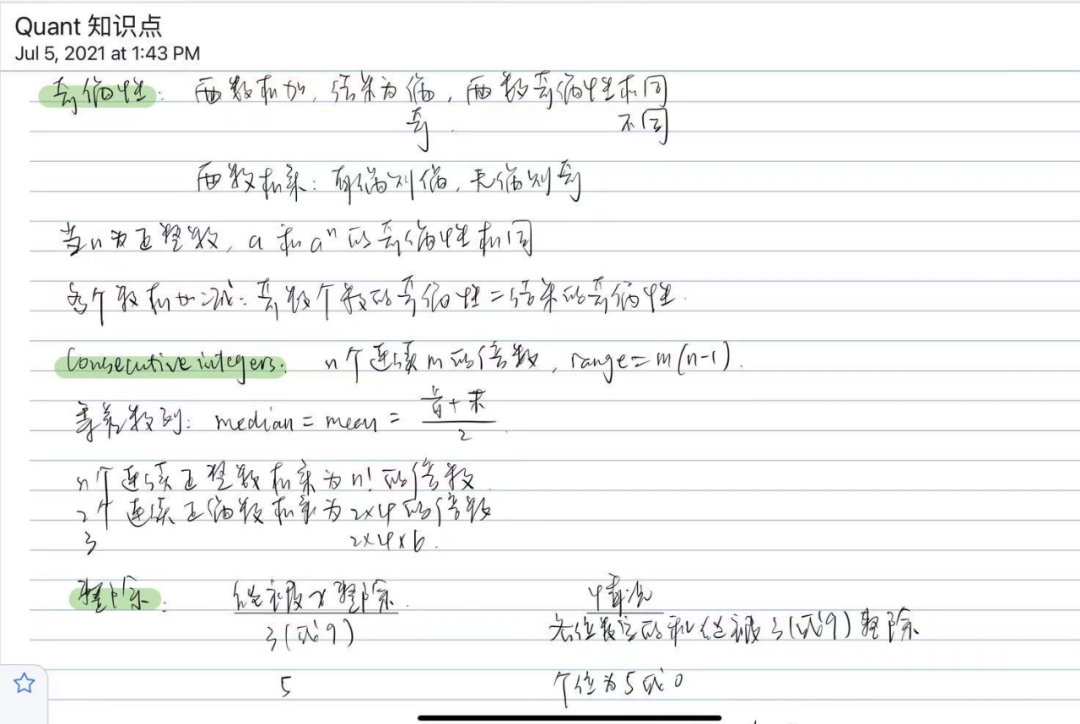 Quant 知识点
Jul 5, 2021 at 1:43 PM
奇偶性: 两数相加, 结果为偶, 两数奇偶性相同
奇. 不同
两数相乘: 有偶则偶, 无偶则奇
当n为正整数, a 和 aⁿ 的奇偶性相同
多个数相加减: 奇数个数的奇偶性=结果的奇偶性.
Consecutive integers: n个连续m的倍数, range=m(n-1).
等差数列: median = mean = (首+末)/2.
n个连续正整数相乘为n! 的倍数
2个连续正偶数相乘为2×4的倍数
3 2×4×6.
整除: 能被x整除. 情况
3(或9) 各位数字的和能被3(或9)整除
5 个位为5或0